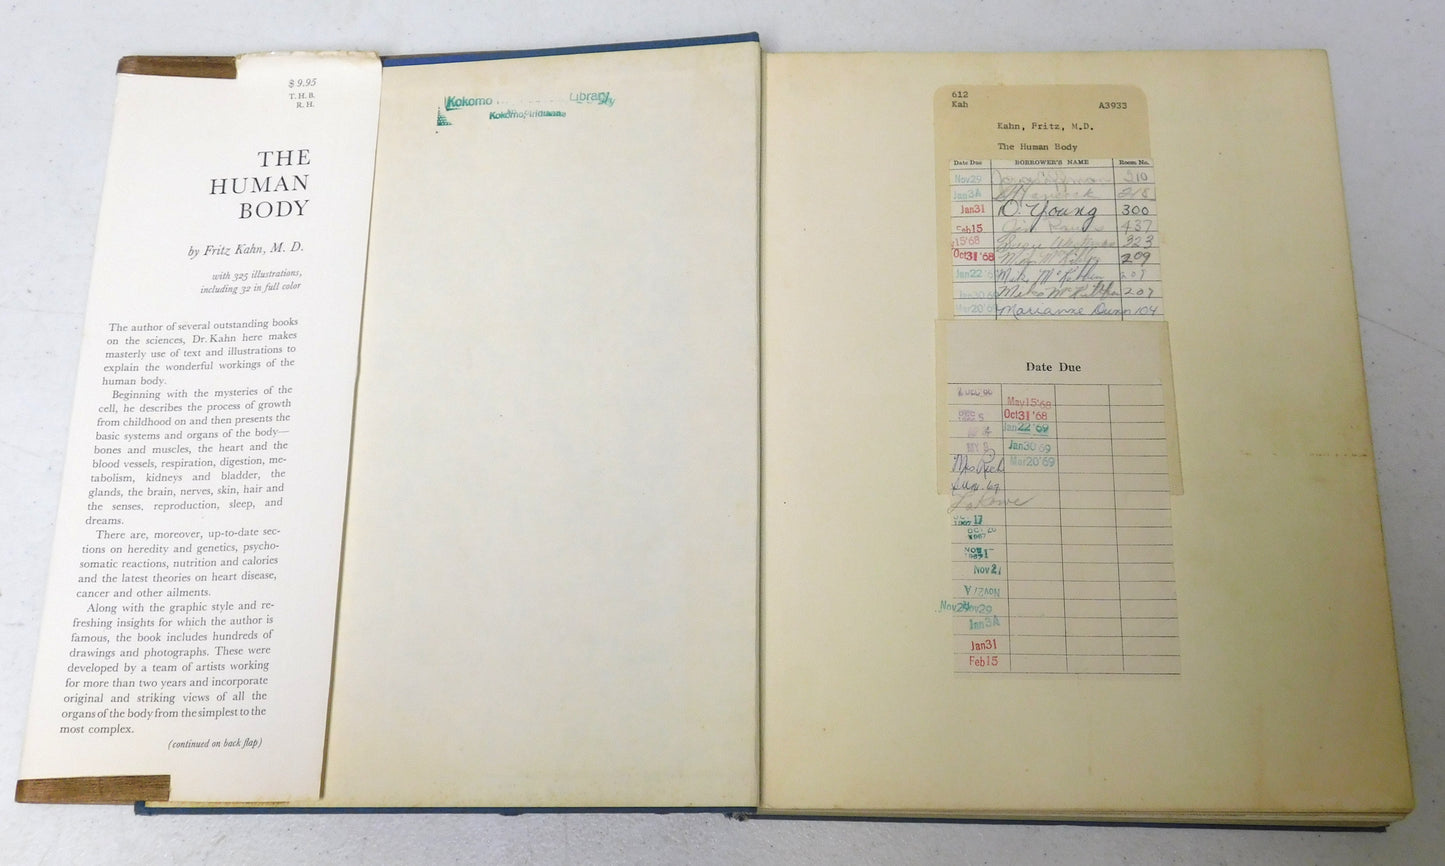 $ 9.95
T. H. B.
R. H.
THE
HUMAN
BODY
by Fritz Kahn, M. D.
with 325 illustrations,
including 32 in full color
The author of several outstanding books
on the sciences, Dr. Kahn here makes
masterly use of text and illustrations to
explain the wonderful workings of the
human body.
Beginning with the mysteries of the
cell, he describes the process of growth
from childhood on and then presents the
basic systems and organs of the body—
bones and muscles, the heart and the
blood vessels, respiration, digestion, me-
tabolism, kidneys and bladder, the
glands, the brain, nerves, skin, hair and
the senses, reproduction, sleep, and
dreams.
There are, moreover, up-to-date sec-
tions on heredity and genetics, psycho-
somatic reactions, nutrition and calories
and the latest theories on heart disease,
cancer and other ailments.
Along with the graphic style and re-
freshing insights for which the author is
famous, the book includes hundreds of
drawings and photographs. These were
developed by a team of artists working
for more than two years and incorporate
original and striking views of all the
organs of the body from the simplest to the
most complex.
(continued on back flap)
Kokomo Library
Kokomo, Indiana
612
Kah A3933
Kahn, Fritz, M.D.
The Human Body
Date Due BORROWER'S NAME Room No.
Nov29 210
Jan3A 218
Jan31 D. Young 300
Feb15 437
15'68 323
Oct31'68 209
Jan22'6 Mike McKibben 207
Jan30'6 Mike McKibben 207
Mar20'6 Marianne Dunn 104
Date Due
May15'68
DEC 5 Oct31'68
Jan22'69
Jan30'69
Mrs Rich Mar20'69
67
17
1967
Nov21
Nov27A
Nov29
Jan3A
Jan31
Feb15